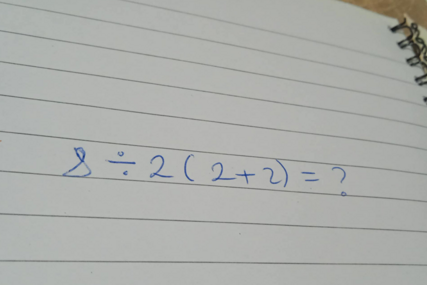 8 ÷ 2 ( 2 + 2 ) = ?